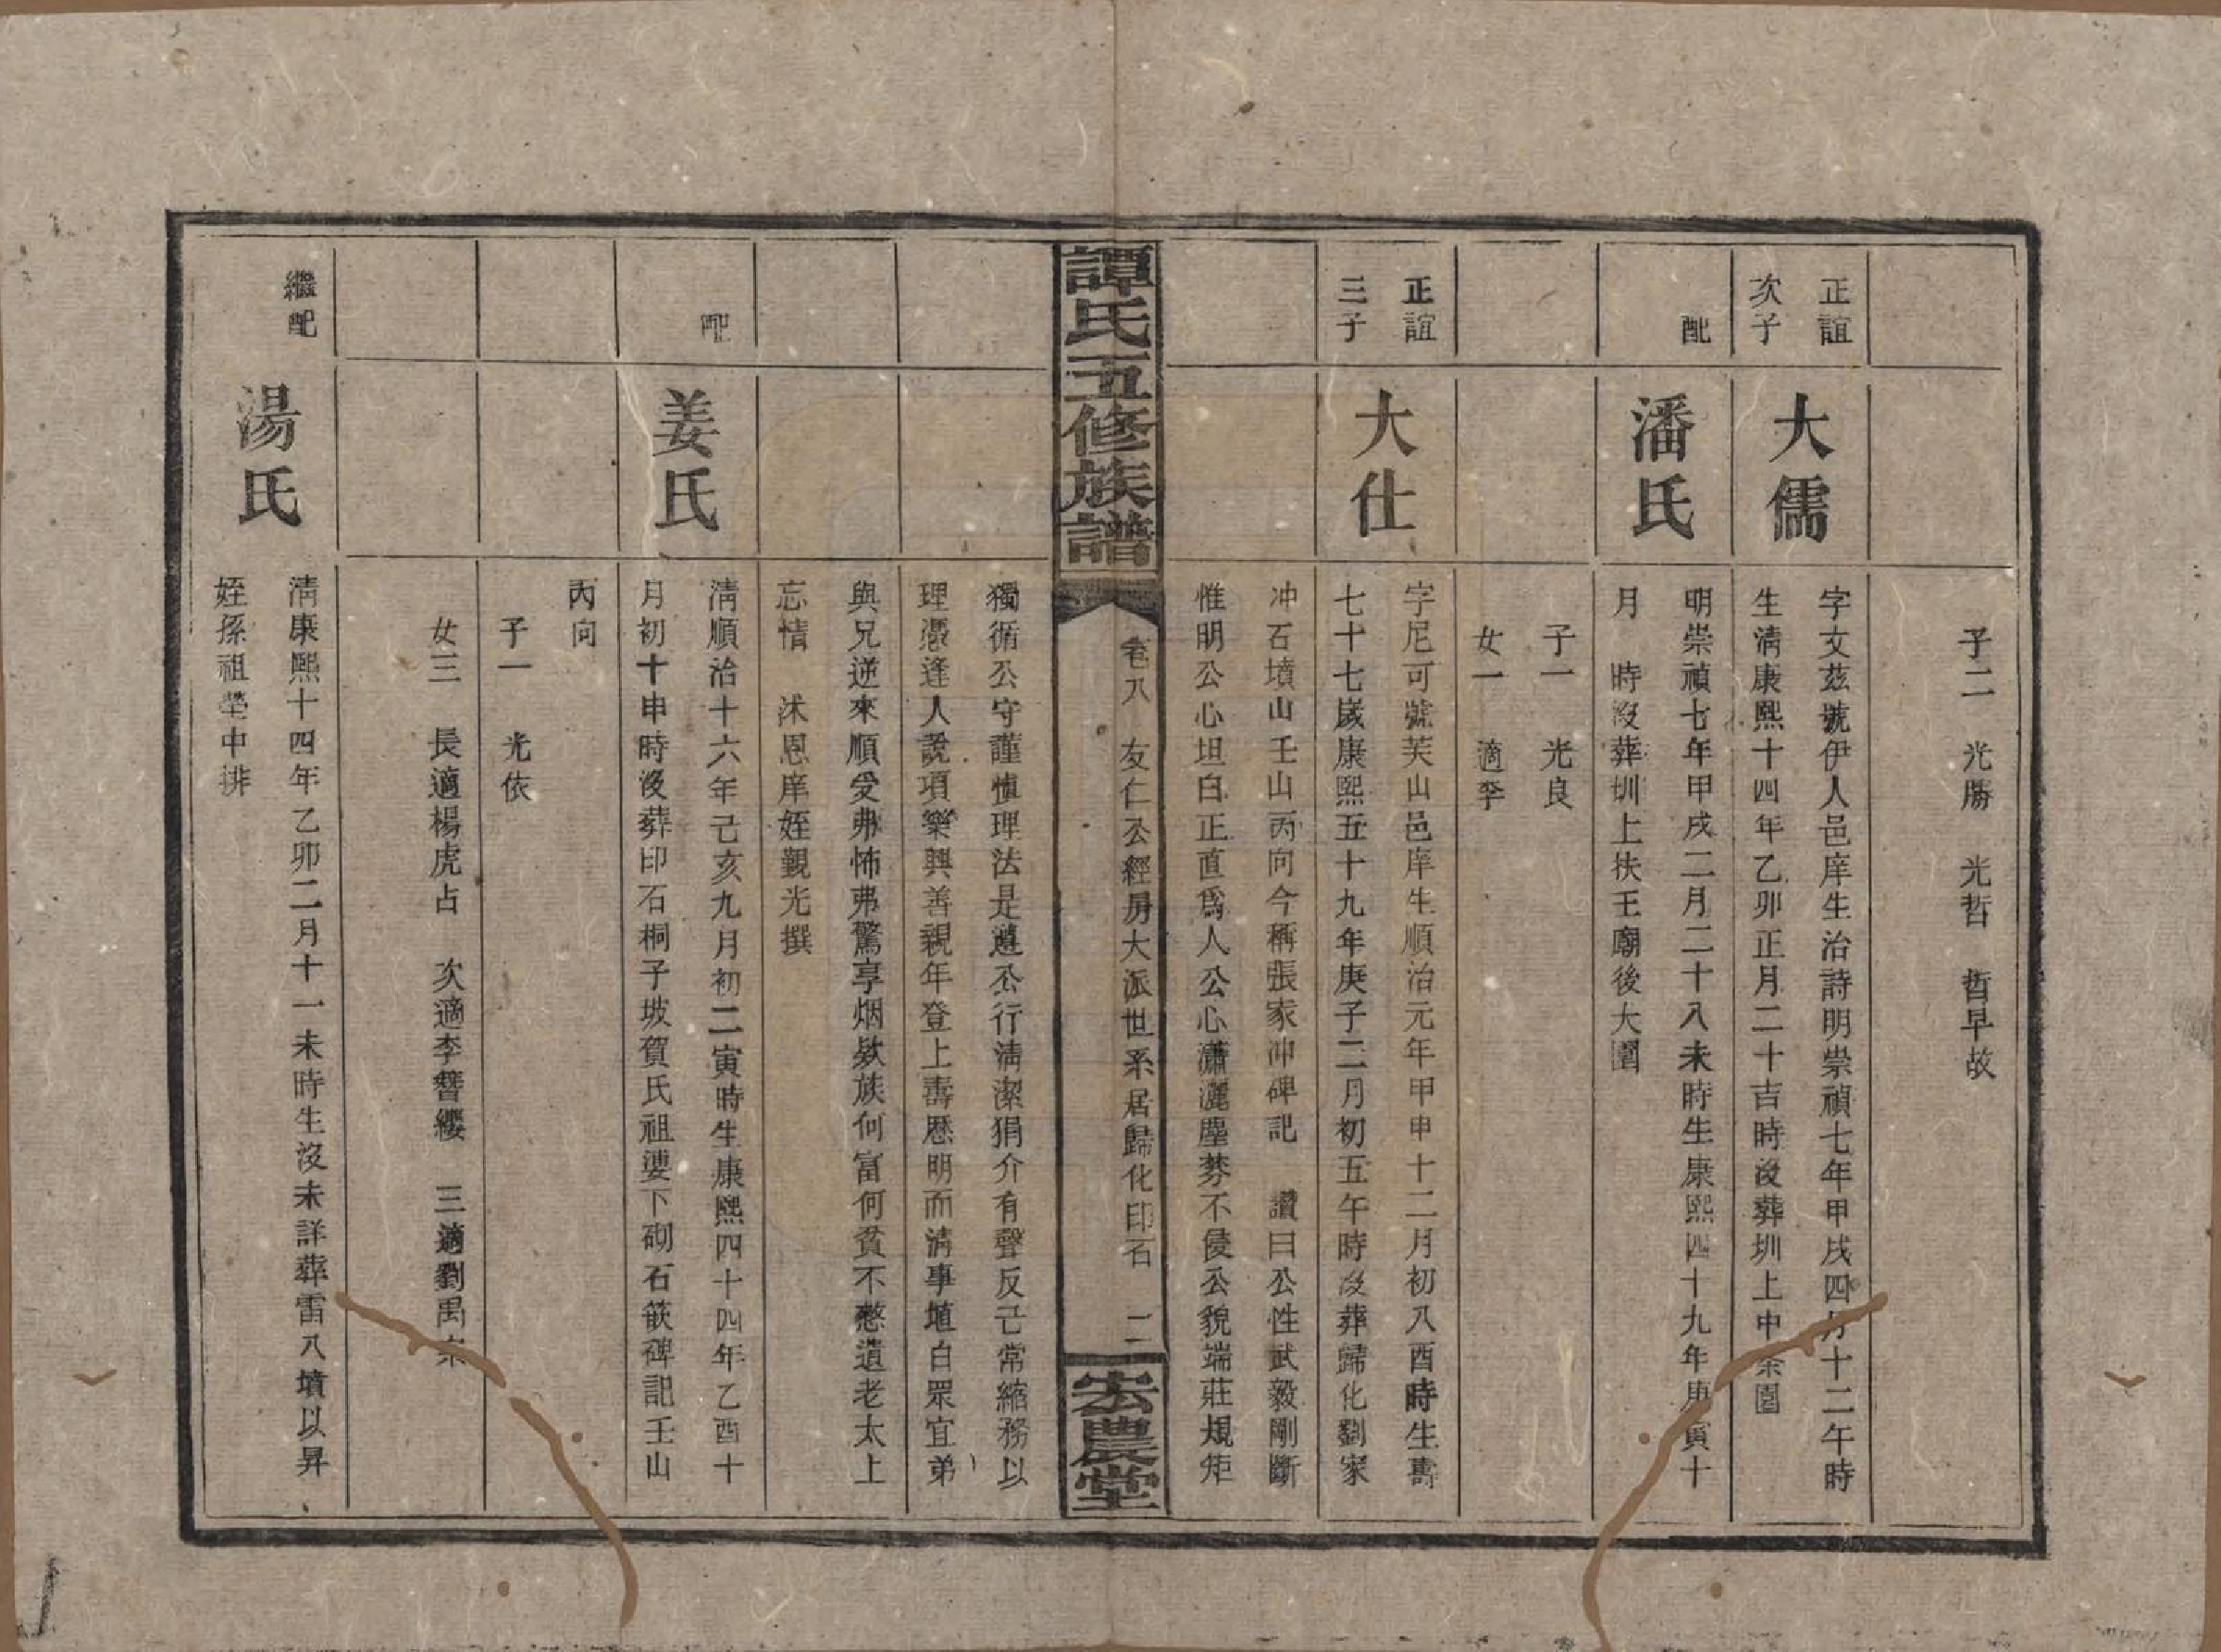 子二　光勝　光哲　哲早故
正誼
次子
大儒
字文茲號伊人邑庠生治詩明崇禎七年甲戌四月十二午時
生清康熙十四年乙卯正月二十吉時沒葬圳上中園
配
潘氏
明崇禎七年甲戌二月二十八未時生康熙四十九年庚寅十
月　時沒葬圳上扶王廟後大園
子一　光良
女一　適李
正誼
三子
大仕
字尼可號芙山邑庠生順治元年甲申十二月初八酉時生壽
七十七歲康熙五十九年庚子二月初五午時沒葬歸化劉家
冲石墳山壬山丙向今稱張家冲碑記　讚曰公性武毅剛斷
惟明公心坦白正直爲人公心瀟灑塵棼不侵公貌端莊規矩
譚氏五修族譜
卷八　友仁公經房大派世系居歸化印石　二
宏農堂
獨循公守謹愼理法是遵公行清潔狷介有聲反己常縮務以
理憑逢人說項樂興善親年登上壽歷明而清事埴白眾宜弟
與兄逆來順受弗怖弗驚享烟欵族何富何貧不憗遺老太上
忘情　沐恩庠姪觀光撰
配
姜氏
清順治十六年己亥九月初二寅時生康熙四十四年乙酉十
月初十申時沒葬印石桐子坡賀氏祖婆下砌石嵌碑記壬山
丙向
子一　光依
女三　長適楊虎占　次適李簪纓　三適劉禹
繼配
湯氏
清康熙十四年乙卯二月十一未時生沒未詳葬雷八墳以昇
姪孫祖塋中排